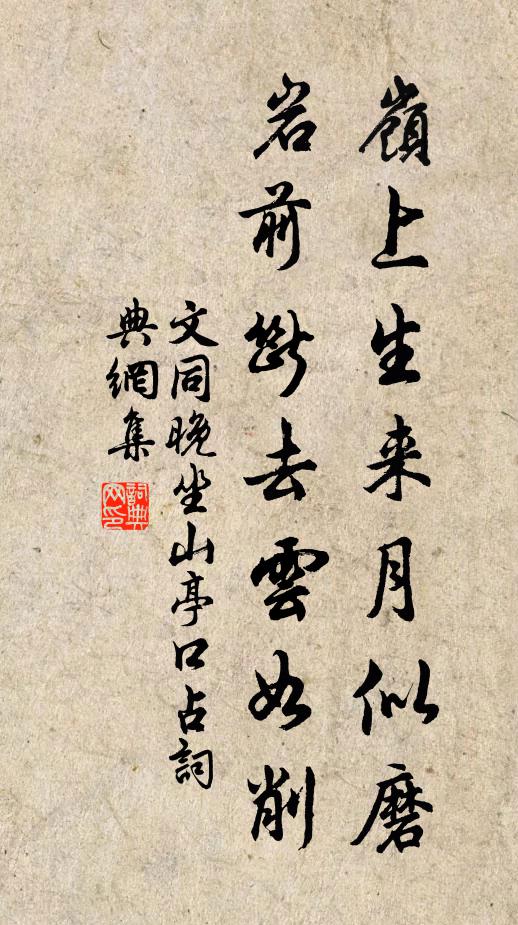 嶺上生来月似磨
岩前斷去雲如削
文同晚坐山亭口占詞
典網集
詞典
网印